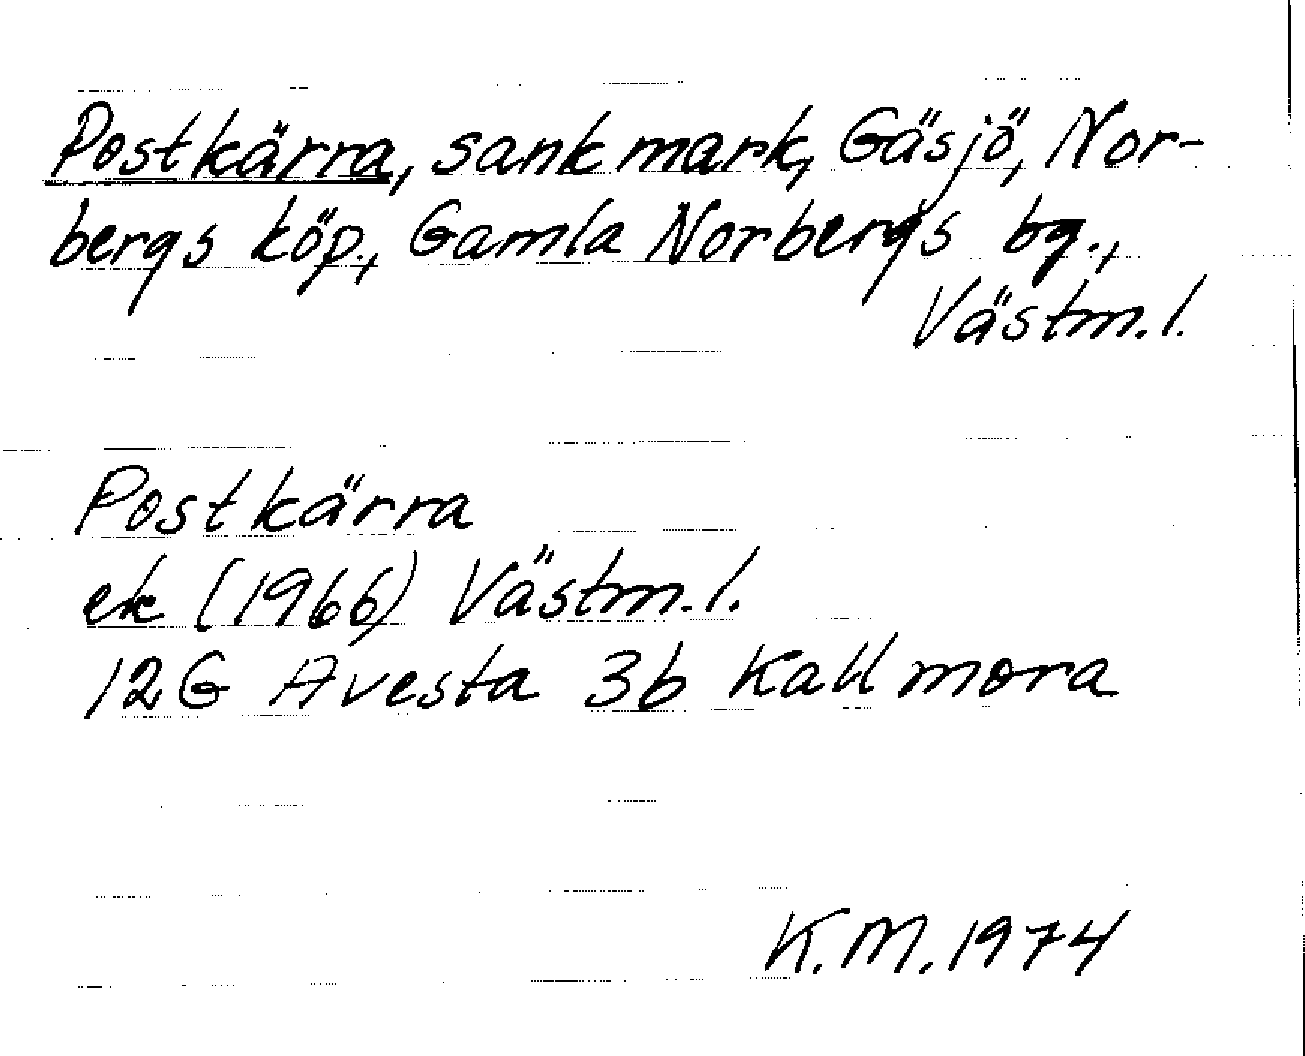 Postkärra, sankmark, Gäsjö, Nor-
bergs köp., Gamla Norbergs bg.,
Västm.l.
Postkärra
ek (1966) Västm.l.
12G Avesta 3b Kallmora
K.M. 1974